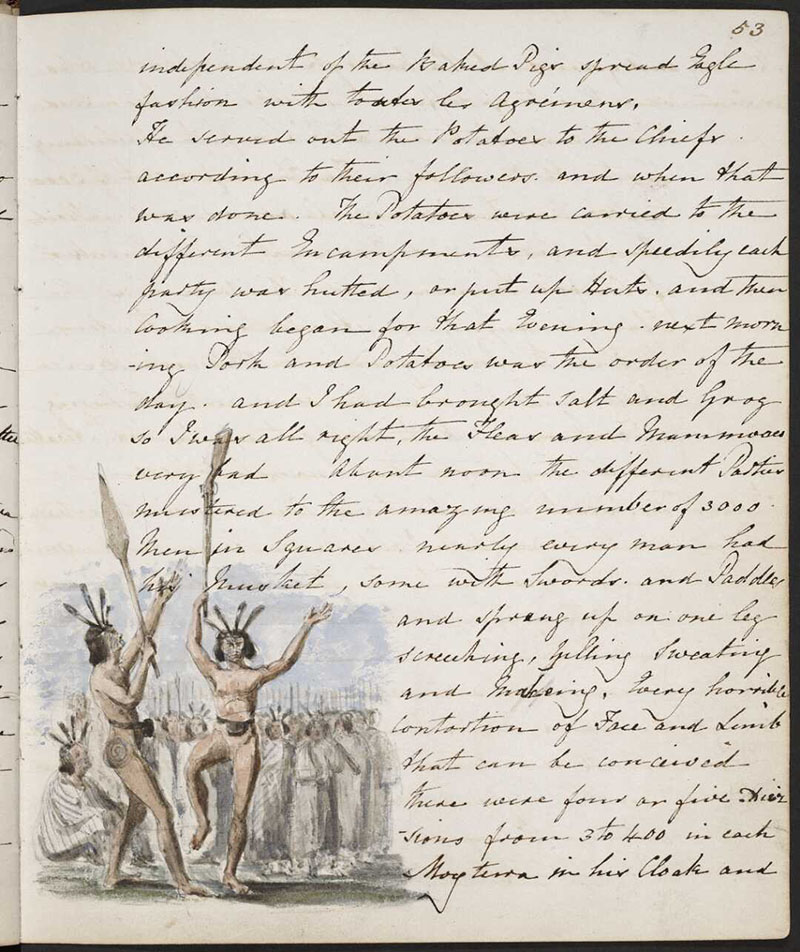 53
independent of the Baked Pigs spread Eagle
fashion with toutes les Agrémens.
He served out the Potatoes to the Chiefs.
according to their followers. and when that
was done. The Potatoes were carried to the
different Encampments, and speedily each
party was hutted, or put up Huts. and then
Cooking began for that Evening. next morn
-ing Pork and Potatoes was the order of the
day. and I had brought Salt and Grog
so I was all right, the Fleas and
very bad About noon the different Parties
mustered to the amazing number of 3000
Men in Squares. nearly every man had
his Musket, some with Swords. and Paddles
and sprang up on one leg
screeching, yelling Sweating
and Making. Every horrible
Contortion of Face and Limb
that can be conceived
there were four or five Divi
-sions from 3 to 400 in each
in his Cloak and